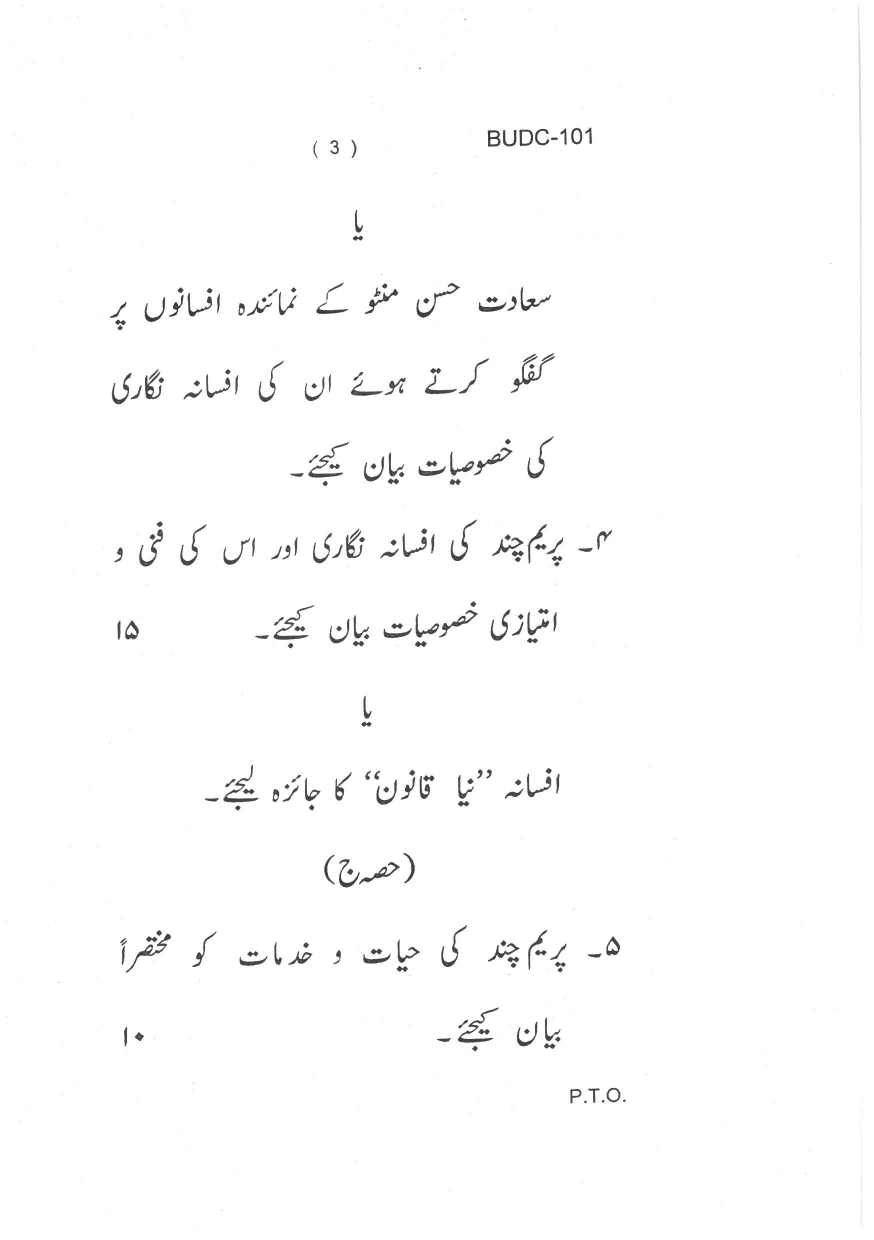 BUDC-101
( 3 )
یا
سعادت حسن منٹو کے نمائندہ افسانوں پر
گفگو کرتے ہوئے ان کی افسانہ نگاری
کی خصوصیات بیان کیجئے۔
۴۔ پریم چند کی افسانہ نگاری اور اس کی فنی و
امتیازی خصوصیات بیان کیجئے۔ ۱۵
یا
افسانہ ”نیا قانون“ کا جائزہ لیجئے۔
(حصہ ج)
۵۔ پریم چند کی حیات و خدمات کو مختصراً
بیان کیجئے۔ ۱۰
P.T.O.